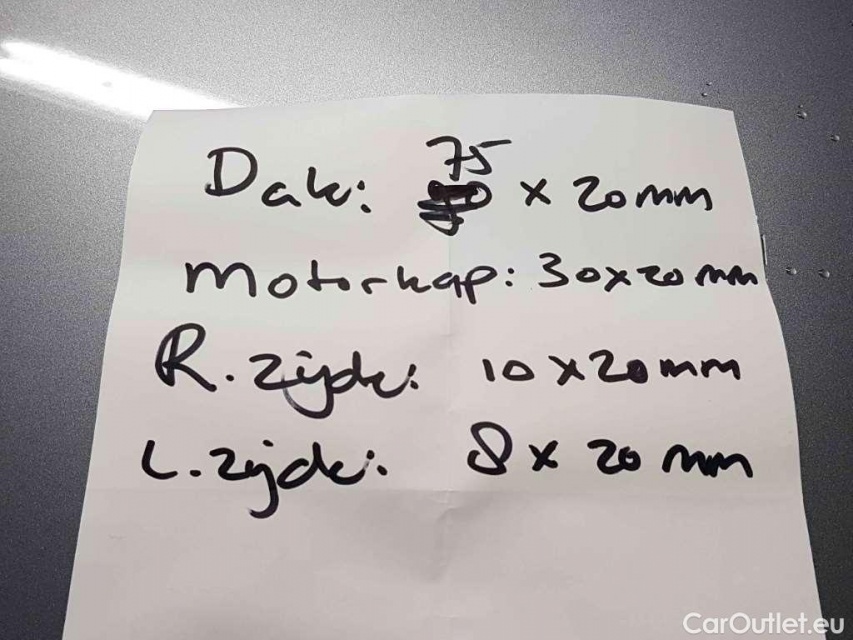 Dak: 75 x 20 mm
Motorkap: 30 x 20 mm
R. zijde: 10 x 20 mm
L. zijde: 8 x 20 mm
CarOutlet.eu